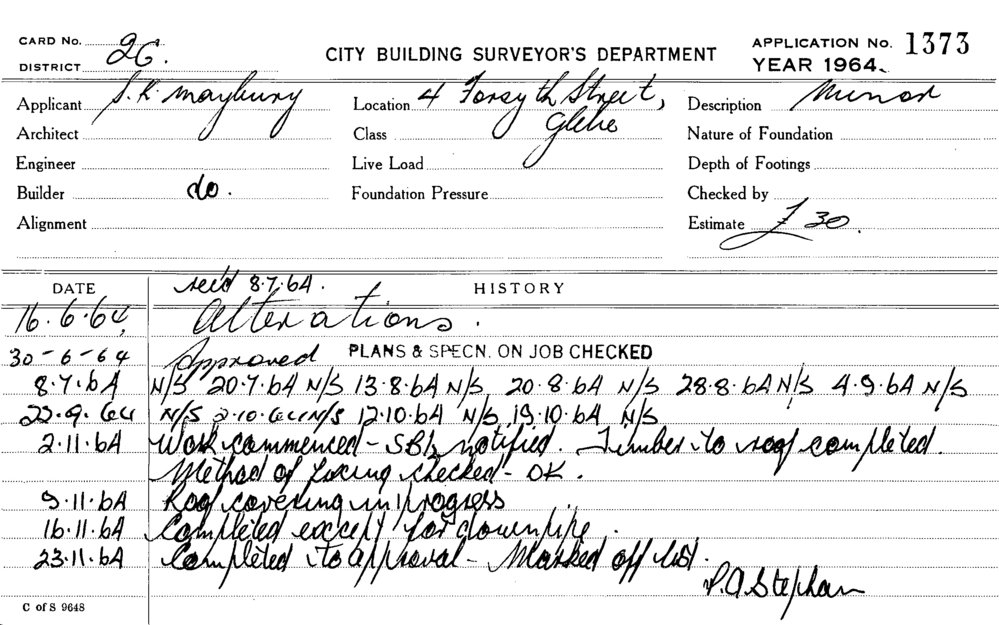 CARD No. 2C.
DISTRICT
CITY BUILDING SURVEYOR'S DEPARTMENT
APPLICATION No. 1373
YEAR 1964.
Applicant S. K. Maybury
Location 4 Forsyth Street,
Glebe
Description Minor
Architect
Class
Nature of Foundation
Engineer
Live Load
Depth of Footings
Builder do.
Foundation Pressure
Checked by
Alignment
Estimate £30.
DATE
HISTORY
rec'd 8.7.64.
16.6.64. Alterations.
30-6-64 Approved PLANS & SPECN. ON JOB CHECKED
8.7.64 N/S 20.7.64 N/S 13.8.64 N/S 20.8.64 N/S 28.8.64 N/S 4.9.64 N/S
22.9.64 N/S 2.10.64 N/S 12.10.64 N/S 19.10.64 N/S
2.11.64 Work commenced - SBI notified. Timber to roof completed.
Method of fixing checked - OK.
9.11.64 Roof covering in progress
16.11.64 Completed except for downpipe.
23.11.64 Completed to approval - Marked off list.
P.A Stephan
C of S 9648